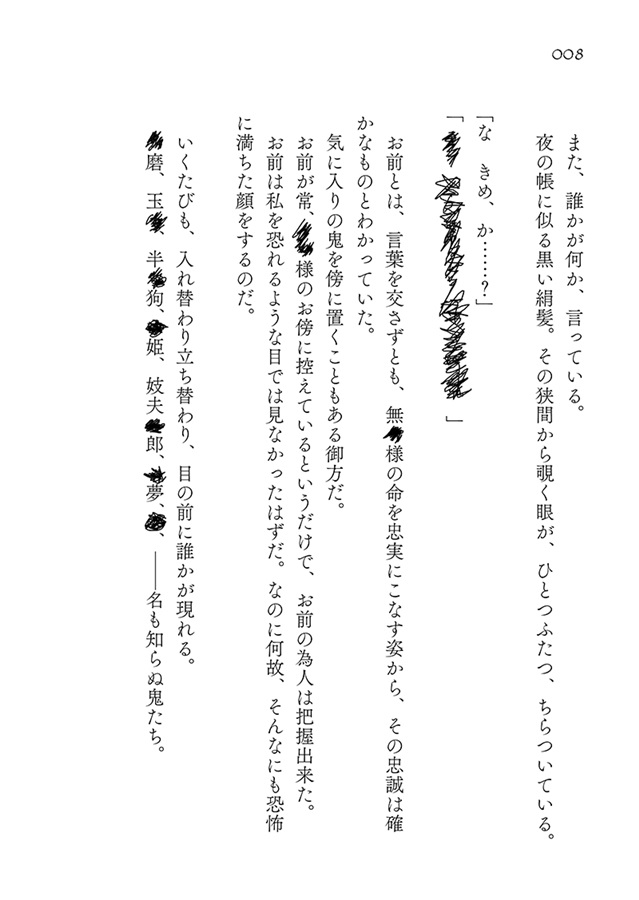 008
また、誰かが何か、言っている。
夜の帳に似る黒い絹髪。その狭間から覗く眼が、ひとつふたつ、ちらついている。
「な　きめ、か……？」
「　　　　」
お前とは、言葉を交さずとも、無様の命を忠実にこなす姿から、その忠誠は確
かなものとわかっていた。
気に入りの鬼を傍に置くこともある御方だ。
お前が常、様のお傍に控えているというだけで、お前の為人は把握出来た。
お前は私を恐れるような目では見なかったはずだ。なのに何故、そんなにも恐怖
に満ちた顔をするのだ。
いくたびも、入れ替わり立ち替わり、目の前に誰かが現れる。
磨、玉、半狗、姫、妓夫郎、夢、、――名も知らぬ鬼たち。